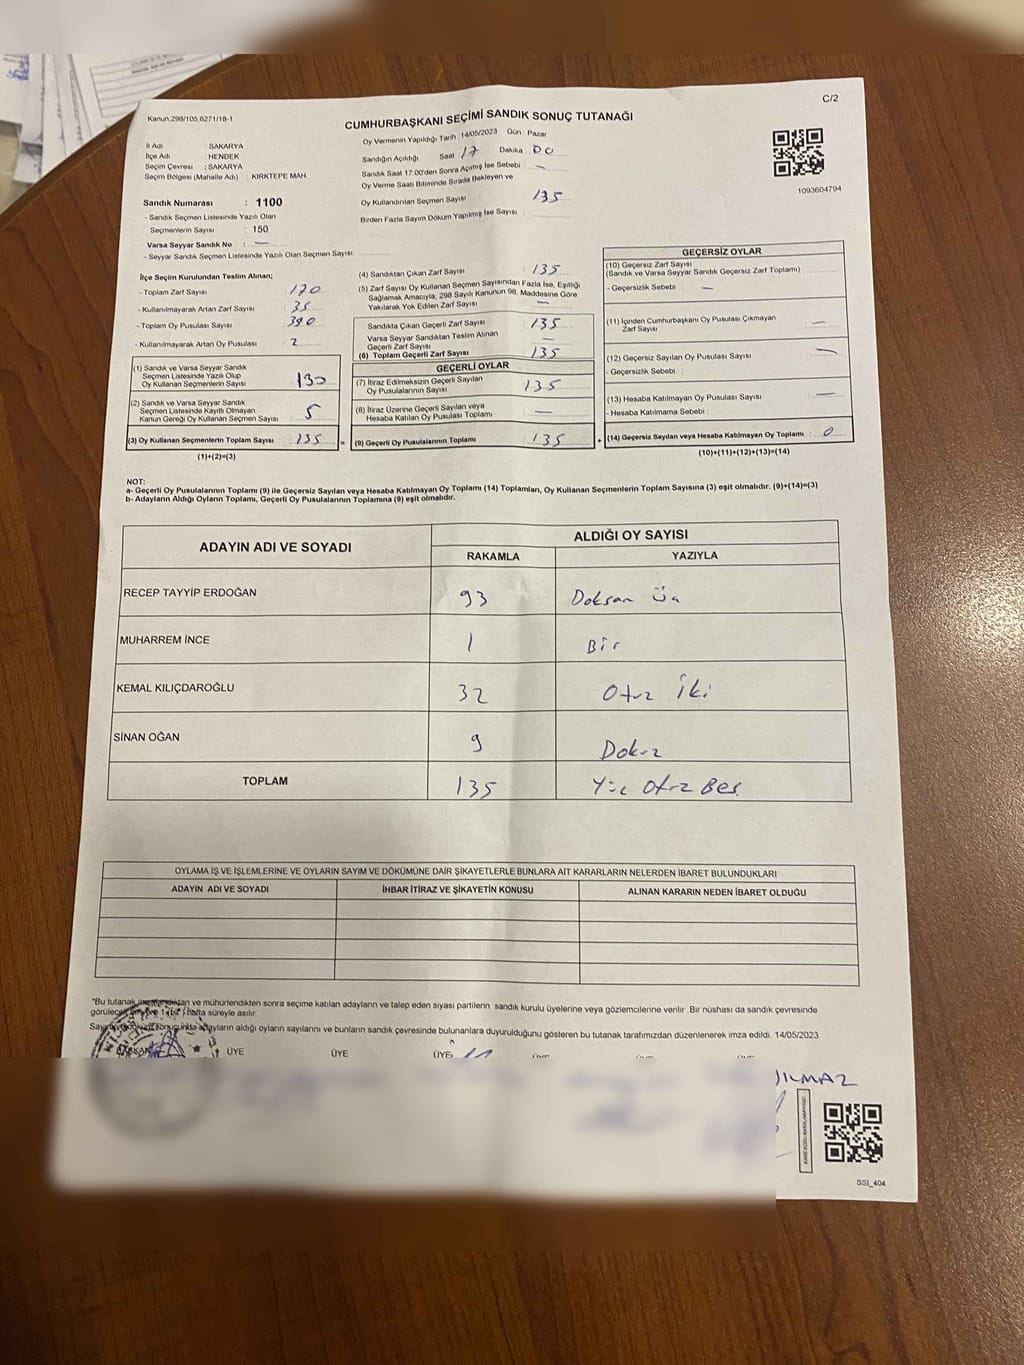 C/2
Kanun:298/105,6271/18-1
CUMHURBAŞKANI SEÇİMİ SANDIK SONUÇ TUTANAĞI
İl Adı : SAKARYA
İlçe Adı : HENDEK
Seçim Çevresi : SAKARYA
Seçim Bölgesi (Mahalle Adı) : KIRKTEPE MAH
Oy Vermenin Yapıldığı Tarih : 14/05/2023 Gün : Pazar
Sandığın Açıldığı Saat : 17 Dakika : 00
Sandık Saat 17.00'den Sonra Açımış İse Sebebi : —
Oy Verme Saati Bitiminde Sırada Bekleyen ve
Oy Kullandırılan Seçmen Sayısı : 135
Birden Fazla Sayım Döküm Yapılmış İse Sayısı :
1093604794
Sandık Numarası : 1100
- Sandık Seçmen Listesinde Yazılı Olan
Seçmenlerin Sayısı : 150
Varsa Seyyar Sandık No : —
- Seyyar Sandık Seçmen Listesinde Yazılı Olan Seçmen Sayısı:
İlçe Seçim Kurulundan Teslim Alınan;
- Toplam Zarf Sayısı : 170
- Kullanılmayarak Artan Zarf Sayısı : 35
- Toplam Oy Pusulası Sayısı : 390
- Kullanılmayarak Artan Oy Pusulası : 2
(1) Sandık ve Varsa Seyyar Sandık
Seçmen Listesinde Yazılı Olup
Oy Kullanan Seçmenlerin Sayısı : 130
(2) Sandık ve Varsa Seyyar Sandık
Seçmen Listesinde Kayıtlı Olmayan
Kanun Gereği Oy Kullanan Seçmen Sayısı : 5
(3) Oy Kullanan Seçmenlerin Toplam Sayısı : 135 =
(1)+(2)=(3)
(4) Sandıktan Çıkan Zarf Sayısı : 135
(5) Zarf Sayısı Oy Kullanan Seçmen Sayısından Fazla İse, Eşitliği
Sağlamak Amacıyla, 298 Sayılı Kanunun 98. Maddesine Göre
Yakılarak Yok Edilen Zarf Sayısı : —
Sandıkta Çıkan Geçerli Zarf Sayısı : 135
Varsa Seyyar Sandıktan Teslim Alınan
Geçerli Zarf Sayısı : —
(6) Toplam Geçerli Zarf Sayısı : 135
GEÇERLİ OYLAR
(7) İtiraz Edilmeksizin Geçerli Sayılan
Oy Pusulalarının Sayısı : 135
(8) İtiraz Üzerine Geçerli Sayılan veya
Hesaba Katılan Oy Pusulası Toplamı : —
(9) Geçerli Oy Pusulalarının Toplamı : 135 +
GEÇERSİZ OYLAR
(10) Geçersiz Zarf Sayısı
(Sandık ve Varsa Seyyar Sandık Geçersiz Zarf Toplamı) :
- Geçersizlik Sebebi : —
(11) İçinden Cumhurbaşkanı Oy Pusulası Çıkmayan
Zarf Sayısı : —
(12) Geçersiz Sayılan Oy Pusulası Sayısı : —
- Geçersizlik Sebebi :
(13) Hesaba Katılmayan Oy Pusulası Sayısı : —
- Hesaba Katılmama Sebebi :
(14) Geçersiz Sayılan veya Hesaba Katılmayan Oy Toplamı : 0
(10)+(11)+(12)+(13)=(14)
NOT:
a- Geçerli Oy Pusulalarının Toplamı (9) ile Geçersiz Sayılan veya Hesaba Katılmayan Oy Toplamı (14) Toplamları, Oy Kullanan Seçmenlerin Toplam Sayısına (3) eşit olmalıdır. (9)+(14)=(3)
b- Adayların Aldığı Oyların Toplamı, Geçerli Oy Pusulalarının Toplamına (9) eşit olmalıdır.
ADAYIN ADI VE SOYADI ALDIĞI OY SAYISI
RAKAMLA YAZIYLA
RECEP TAYYİP ERDOĞAN 93 Doksan Üç
MUHARREM İNCE 1 Bir
KEMAL KILIÇDAROĞLU 32 Otuz İki
SİNAN OĞAN 9 Dokuz
TOPLAM 135 Yüz Otuz Beş
OYLAMA İŞ VE İŞLEMLERİNE VE OYLARIN SAYIM VE DÖKÜMÜNE DAİR ŞİKAYETLERLE BUNLARA AİT KARARLARIN NELERDEN İBARET BULUNDUKLARI
ADAYIN ADI VE SOYADI İHBAR İTİRAZ VE ŞİKAYETİN KONUSU ALINAN KARARIN NEDEN İBARET OLDUĞU
*Bu tutanak ve mühürlendikten sonra seçime katılan adayların ve talep eden siyasi partilerin sandık kurulu üyelerine veya gözlemcilerine verilir. Bir nüshası da sandık çevresinde
hafta süreyle asılır.
adayların aldığı oyların sayılarını ve bunların sandık çevresinde bulunanlara duyurulduğunu gösteren bu tutanak tarafımızdan düzenlenerek imza edildi. 14/05/2023
BAŞKAN ÜYE ÜYE ÜYE
SSI_404